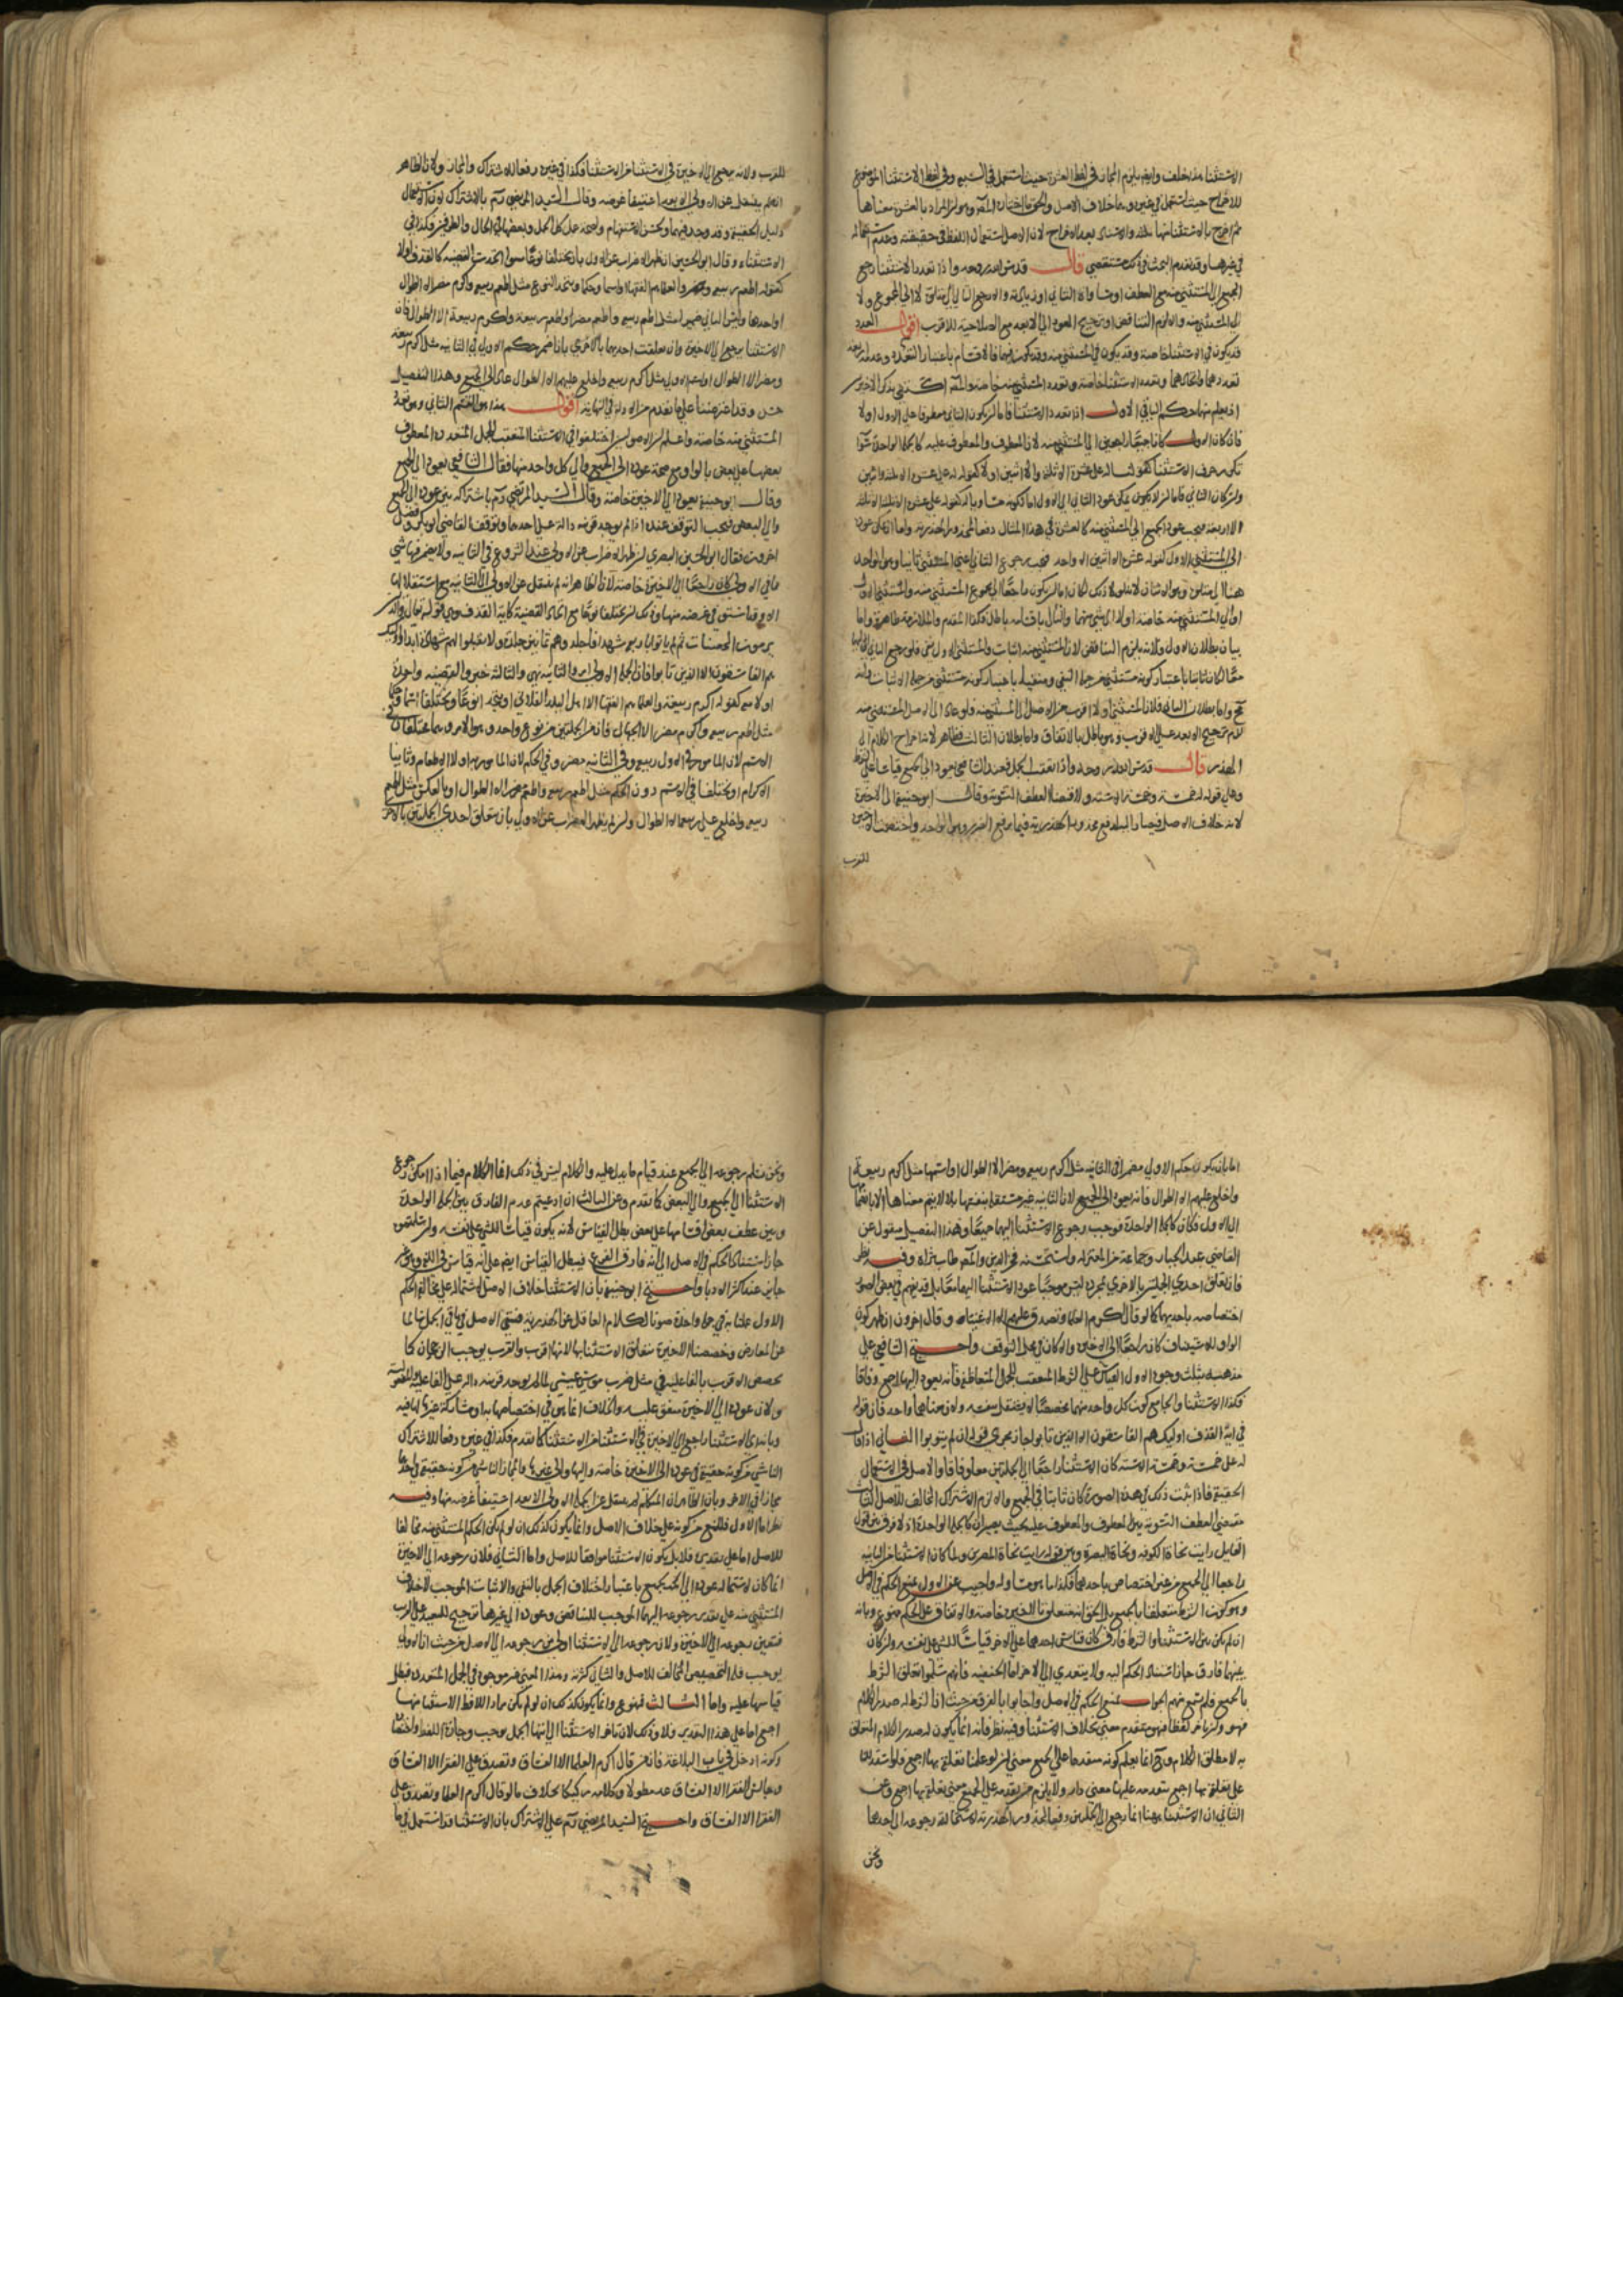 الاستثنا هذا خلف وايضا يلزم المجاز في لفظ العشرة حيث استعمل في السبع وفي لفظ الاستثنا الموضوع
للاخراج حيث استعمل في غيره وهما خلاف الاصل والحق ما اختاره المص وهو ان المراد بالعشرة معناها
ثم اخرج بالاستثنا منها ثلثة والاسناد بعد الاخراج لان الاصل استعمال اللفظ في حقيقته وعدم استعماله
في غيرها وقد تقدم البحث في ذلك مستقصى قال قدس الله روحه واذا تعدد الاستثنا رجع
الجميع الى المستثنى منه مع العطف او مساواة الثاني او زيادته والا رجع التالي الى متلوه لا الى المجموع ولا
الى المستثنى منه والا لزم التناقض او ترجيح العود الى الابعد مع الصلاحية للاقرب اقول التعدد
قد يكون في الاستثنا خاصة وقد يكون في المستثنى منه وقد يكون فيهما فالاقسام باعتبار التعدد وعدمه اربعة
تعددهما واتحادهما وتعدد الاستثنا خاصة وتعدد المستثنى منه خاصة والمص اكتفى بذكر الاخيرين
اذ يعلم منهما حكم الباقي الاول اذا تعدد الاستثنا فاما ان يكون الثاني معطوفا على الاول او لا
فان كان الاول كانا جميعا راجعين الى المستثنى منه لان المعطوف والمعطوف عليه كالجملة الواحدة سوا
تكرر حرف الاستثنا كقولنا له على عشرة الا ثلثة والا اثنين او لا كقوله له على عشرة الا ثلثة واثنين
وان كان الثاني فاما ان لا يكون يمكن عود الثاني الى الاول اما لكونه مساويا له كقوله على عشرة الا ثلثة الا ثلثة
الا اربعة فيجب عود الجميع الى المستثنى منه كالعشرة في هذا المثال دفعا لمحذور الهذرية واما ان يمكن عوده
الى المستثنى الاول كقوله عشرة الا اثنين الا واحد فيجب رجوع الثاني اعني المستثنى ثانيا وهو الواحد
هنا الى متلوه وهو الاثنان لانه لولا ذلك لكان اما ان يكون راجعا الى مجموع المستثنى منه والمستثنى الاول
او الى المستثنى منه خاصة او لا الى شي منهما والتالي باقسامه باطل فكذا المقدم والملازمة ظاهرة واما
بيان بطلان الاول فلانه يلزم التناقض لان المستثنى منه اثبات والمستثنى الاول نفي فلو رجع الثاني اليهما
معا لكان ثابتا باعتبار كونه مستثنى من جملة النفي ومنفيا باعتبار كونه مستثنى من جملة الاثبات وانه
مح واما بطلان الثاني فلان المستثنى الاول اقرب من الاصل الى المستثنى منه فلو عاد الى الاصل المستثنى منه
لزم ترجيح الابعد على الاقرب وهو باطل بالاتفاق واما بطلان الثالث فظاهر لاستخراج الكلام الى
الهذر قال قدس الله روحه واذا تعقب الجمل فعند الشافعي يعود الى الجميع قياسا على الشرط
وعلى قوله له خمسة وخمسة الا ستة ولاقتضا العطف التسوية وقال ابو حنيفة الى الاخيرة
لانه خلاف الاصل فيصار اليه لدفع محذور الهذرية فيما يرفع الضرورة وهو الواحد واختصت الاخيرة
للقرب
للقرب ولانه يرجع الى الاخيرة في الاستثنا من الاستثنا فكذا في غيره دفعا للاشتراك والمجاز ولان الظاهر
انه لم ينتقل عن الاولى الا بعد استيفا غرضه وقال السيد المرتضى رحمه بالاشتراك لان الاستعمال
دليل الحقيقة وقد وجد فيهما ولحسن الاستفهام ولصحة عمل كل الجمل وبعضها في الحال والظرفين فكذا في
الاستثناء وقال ابو الحسين ان ظهر الاضراب عن الاول بان يختلفا نوعا سوا اتحدت القضية كالقذف او لا
كقوله اطعم ربيعة ومضر والعلماء هم الفقهاء او اسما وحكما ويتحد النوع مثل اطعم ربيعة واكرم مضر الا الطوال
او احدهما وليس الثاني ضميرا مثل اطعم ربيعة واطعم مضر او اطعم ربيعة واكرم ربيعة الا الطوال فان
الاستثنا يرجع الى الاخيرة وان تعلقت احديهما بالاخرى بان اضمر حكم الاولى في الثانيه مثل اكرم ربيعة
ومضر الا الطوال او اسم الاول مثل اكرم ربيعة واخلع عليهم الا الطوال عاد الى الجميع وهذا التفصيل
حسن وقد اعترضنا على ما تقدم من الادلة في النهاية اقول هذا هو القسم الثاني وهو تعدد
المستثنى منه خاصة واعلم ان الاصوليين اختلفوا في الاستثنا المتعقب للجمل المتعددة المعطوف
بعضها على بعض بالواو مع صحة عوده الى الجميع والى كل واحد منها فقال الشافعي يعود الى الجميع
وقال ابو حنيفة يعود الى الاخيرة خاصة وقال السيد المرتضى رحمه باشتراكه بين عوده الى الجميع
والى البعض فيجب التوقف عنده اذا لم يوجد قرينة دالة على احدهما وتوقف القاضي ابو بكر وفصل
اخرون فقال ابو الحسين البصري ان ظهر الاضراب عن الاولى عند الشروع في الثانيه ولا يضمر فيها شي
مما في الاولى كان راجعا الى الاخيرة خاصة لان الظاهر انه لم ينتقل عن الاولى الى الثانية مع استقلالها
الا وقد استوفى غرضه منها وذلك ان يختلفا نوعا مع اتحاد القضية كاية القذف وهي قوله تعالى والذين
يرمون المحصنات ثم لم ياتوا باربعة شهدا فاجلدوهم ثمانين جلدة ولا تقبلوا لهم شهادة ابدا واوليك
هم الفاسقون الا الذين تابوا فان الجملة الاولى امر والثانية نهي والثالثة خبر والقضية واحدة
او لا مع كقوله اكرم ربيعة والعلماء هم الفقهاء الا اهل البلد الفلاني او يتحدا نوعا ويختلفا اسما وحكما
مثل اطعم ربيعة واكرم مضر الا الجهال فان الجملتين من نوع واحد وهو الامر وهما مختلفان في
الاسم لان الماموربه في الاول ربيع وفي الثانيه مضر وفي الحكم لان المامور به اولا الاطعام وثانيا
الاكرام او يختلفا في الاسم دون الحكم مثل اطعم ربيعة واطعم مضر الا الطوال او بالعكس مثل اطعم
ربيعة واخلع على ربيعة الا الطوال وان لم يظهر الاضراب عن الاولى بان تتعلق احدى الجملتين بالاخرى
اما بان يكون حكم الاولى مضمرا في الثانية مثل اكرم ربيعة ومضر الا الطوال او اسمها مثل اكرم ربيعة
واخلع عليهم الا الطوال فانه يعود الى الجميع لان الثانيه غير مستقلة بنفسها بل لا يتم معناها الا بانضمامها
الى الاولى فكان كالجملة الواحدة فوجب رجوع الاستثنا اليهما جميعا وهذا التفصيل منقول عن
القاضي عبد الجبار وجماعة من المعتزلة واستحسنه فخر الدين والمص طاب ثراه وفيه نظر
فان تعلق احدى الجملتين بالاخرى بمجرده ليس موجبا عود الاستثنا اليهما معا بل قد يفهم في بعض الصور
اختصاصه باحديهما كما لو قال اكرم العلما وتصدق عليهم الا الاغنياء وقال اخرون ان ظهر كون
الواو للاستيناف كان راجعا الى الاخيرة والا كان في محل التوقف واحتج الشافعي على
مذهبه بثلث وجوه الاول القياس على الشرط المتعقب للجمل المتعاطفة فانه يعود اليها اجمع وفاقا
فكذا الاستثنا والجامع كون كل واحد منهما مخصصا لا يستقل بنفسه ولان معناهما واحد فان قوله
في اية القذف اوليك هم الفاسقون الا الذين تابوا جار مجرى قوله ان لم يتوبوا الثاني اذا قال
له على خمسة وخمسة الا ستة كان الاستثنا راجعا الى الجملتين معا وفاقا والاصل في الاستعمال
الحقيقة فاذا ثبت ذلك في هذه الصورة كان ثابتا في الجميع والا لزم الاشتراك المخالف للاصل الثالث
مقتضى العطف التسوية بين المعطوف والمعطوف عليه بحيث يصيران كالجملة الواحدة اذ لا فرق بين قول
القايل رايت نحاة الكوفة ونحاة البصرة وبين قوله رايت نحاة المصرين ولما كان الاستثنا من الثانيه
راجعا الى الجميع من غير اختصاص باحدهما فكذا ما هو مساو له واجيب عن الاول بمنع الحكم في الاصل
وهو كون الشرط متعلقا بالجميع بل الحق انه متعلق بالاخيرة خاصة والاتفاق على الحكم ممنوع وبانه
ان لم يكن بين الاستثنا والشرط فارق كان قياس احدهما على الاخر قياسا للشي على نفسه وان كان
بينهما فارق جاز استناد الحكم اليه ولا يتعدى الى الاخر اما الحنفية فانهم سلموا تعلق الشرط
بالجميع فلم يتمش منهم الجواب بمنع الحكم في الاصل واجابوا بالفرق من حيث ان الشرط له صدر الكلام
فهو وان تاخر لفظا فهو متقدم معنى بخلاف الاستثنا وفيه نظر فانه انما يكون له صدر الكلام المتعلق
به لا مطلق الكلام وح انما يعلم كونه متقدما على الجميع معنى ان لو علمنا تعلقه بها اجمع فلو استفدنا
على تعلقه بها اجمع بتقدمه عليها معنى دار ولا يلزم من تقدمه على الجميع معنى تعلقه بها اجمع وعن
الثاني ان الاستثنا ههنا انما رجع الى الجملتين دفعا لمحذور الهذرية لاستحالة رجوعه الى احدهما
ونحن
ونحن نسلم رجوعه الى الجميع عند قيام ما يدل عليه والكلام ليس في ذلك انما الكلام فيما اذا امكن رجوع
الاستثنا الى الجميع والى البعض كما تقدم وعن الثالث ان ادعيتم عدم الفارق بين الجملة الواحدة
وبين عطف بعض اقسامها على بعض بطل القياس لانه يكون قياسا للشي على نفسه وان سلمتم
جاز استناد الحكم في الاصل الى انه فارق الفرع فيبطل القياس ايضا على انه قياس في اللغة وهو غير
جايز عند اكثر الادبا واحتج ابو حنيفة بان الاستثنا خلاف الاصل لاشتماله على مخالفة الحكم
الاول عملنا به في جملة واحدة صونا لكلام العاقل عن الهذرية فبقي الاصل في باقي الجمل سالما
عن المعارض وخصصنا الاخيرة بتعلق الاستثنا بها لانها اقرب والقرب يوجب الرجحان كما
يخصص الاقرب بالفاعلية في مثل ضرب موسى عيسى لما لم يوجد قرينة دالة على الفاعلية والمفعولية
ولان عوده الى الاخيرة متفق عليه والخلاف انما هو في اختصاصها به او مشاركة غيرها فيه
وبانه اي الاستثنا راجع الى الاخيرة في الاستثنا من الاستثنا كما تقدم فكذا في غيره دفعا للاشتراك
الناشي من كونه حقيقة في عوده الى الاخيرة خاصة واليها والى غيرها والمجاز الناشي من كونه حقيقة في احدهما
مجازا في الاخر وبان الظاهر ان المتكلم لم ينتقل عن الجملة الاولى الا بعد استيفا غرضه منها وفيه
نظر اما الاول فللمنع من كونه على خلاف الاصل وانما يكون كذلك ان لو لم يكن الحكم المستثنى منه مخالفا
للاصل اما على تقديره فلا بل يكون الاستثنا موافقا للاصل واما الثاني فلان رجوعه الى الاخيرة
انما كان لاستحالة عوده الى الجميع باعتبار اختلاف الجمل بالنفي والاثبات الموجب لاختلاف
المستثنى منه على تقدير رجوعه اليهما الموجب للتناقض وعوده الى غيرها ترجيح للبعيد على القريب
فتعين رجوعه الى الاخيرة ولان رجوعه الى الاستثنا اولى من رجوعه الى الاصل من حيث ان الاول
يوجب قلة التخصيص المخالف للاصل والثاني كثرته وهذا المعنى غير موجود في الجمل المتعددة فبطل
قياسها عليه واما الثالث فممنوع وانما يكون كذلك ان لو لم يكن مراد اللافظ الاستثنا منها
اجمع اما على هذا التقدير فلا وذلك لان تاخر الاستثنا الى انتها الجمل يوجب وجازة اللفظ واختصاره
وكونه ادخل في باب البلاغة فانه من قال اكرم العلما الا الفساق وتصدق على الفقرا الا الفساق
وجالس الفقرا الا الفساق عد مطولا وكلامه ركيكا بخلاف ما لو قال اكرم العلما وتصدق على
الفقرا الا الفساق واحتج السيد المرتضى رحمه على الاشتراك بان الاستثنا قد استعمل في ما